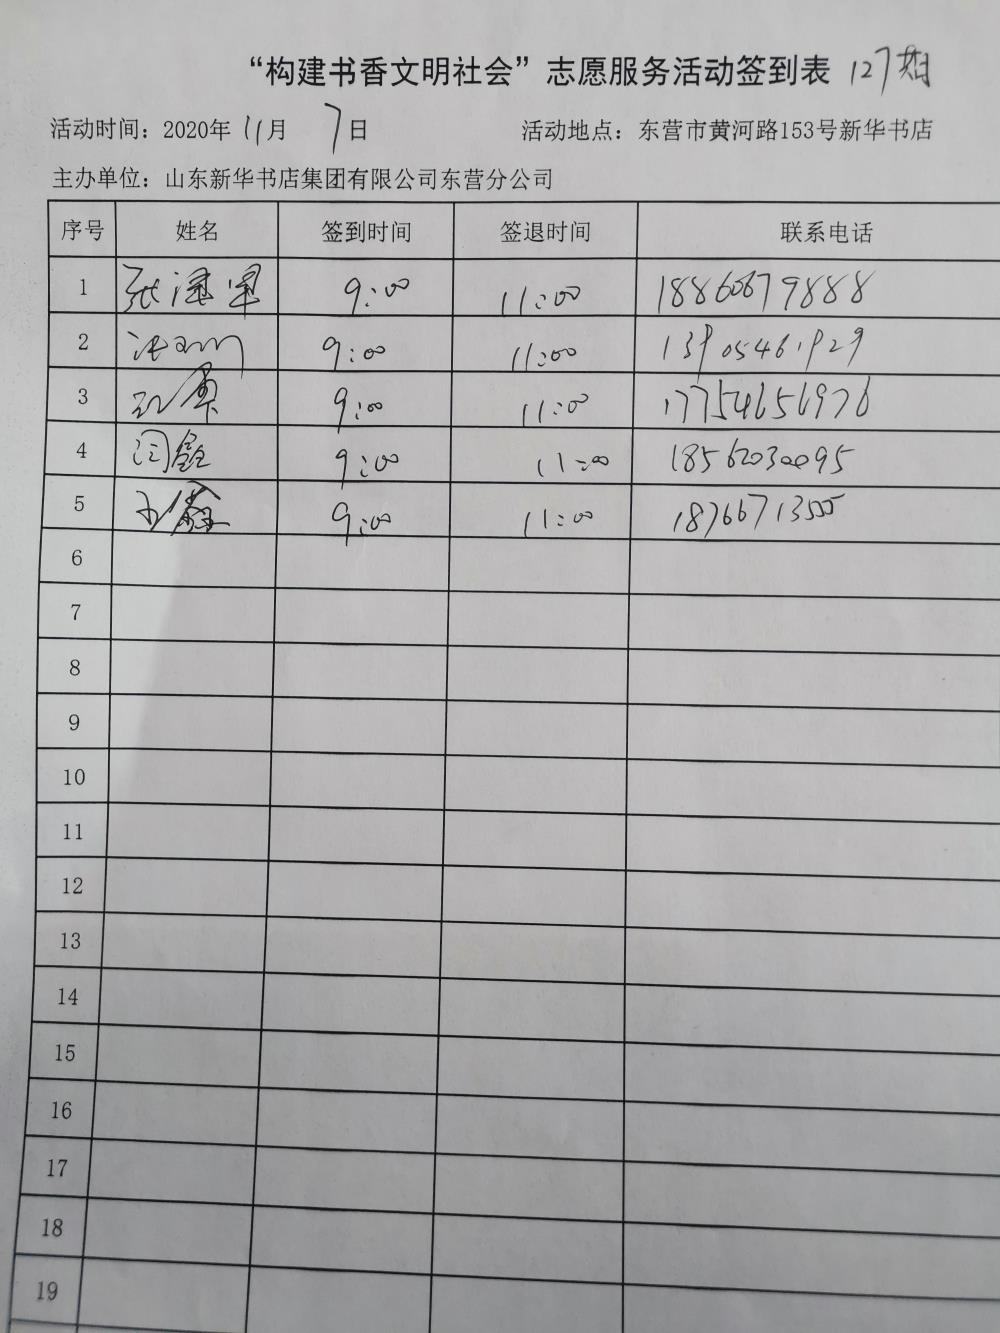 “构建书香文明社会”志愿服务活动签到表 127期
活动时间：2020年 11月 7日 活动地点：东营市黄河路153号新华书店
主办单位：山东新华书店集团有限公司东营分公司
序号 姓名 签到时间 签退时间 联系电话
1 张 9:00 11:00 18860679888
2 9:00 11:00 13905461929
3 9:00 11:00 17754656976
4 闫鑫 9:00 11:00 18562030095
5 9:00 11:00 18766713555
6
7
8
9
10
11
12
13
14
15
16
17
18
19